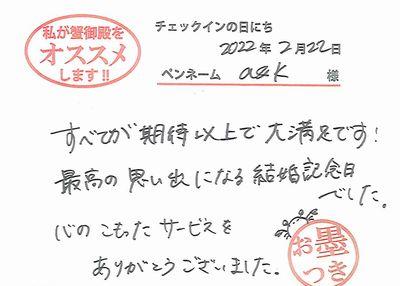 私が蟹御殿を
オススメ
します!!
チェックインの日にち
2022年2月22日
ペンネーム a&K 様
すべてが期待以上で大満足です!
最高の思い出になる結婚記念日
でした。
心のこもったサービスを
ありがとうございました。
お墨
つき